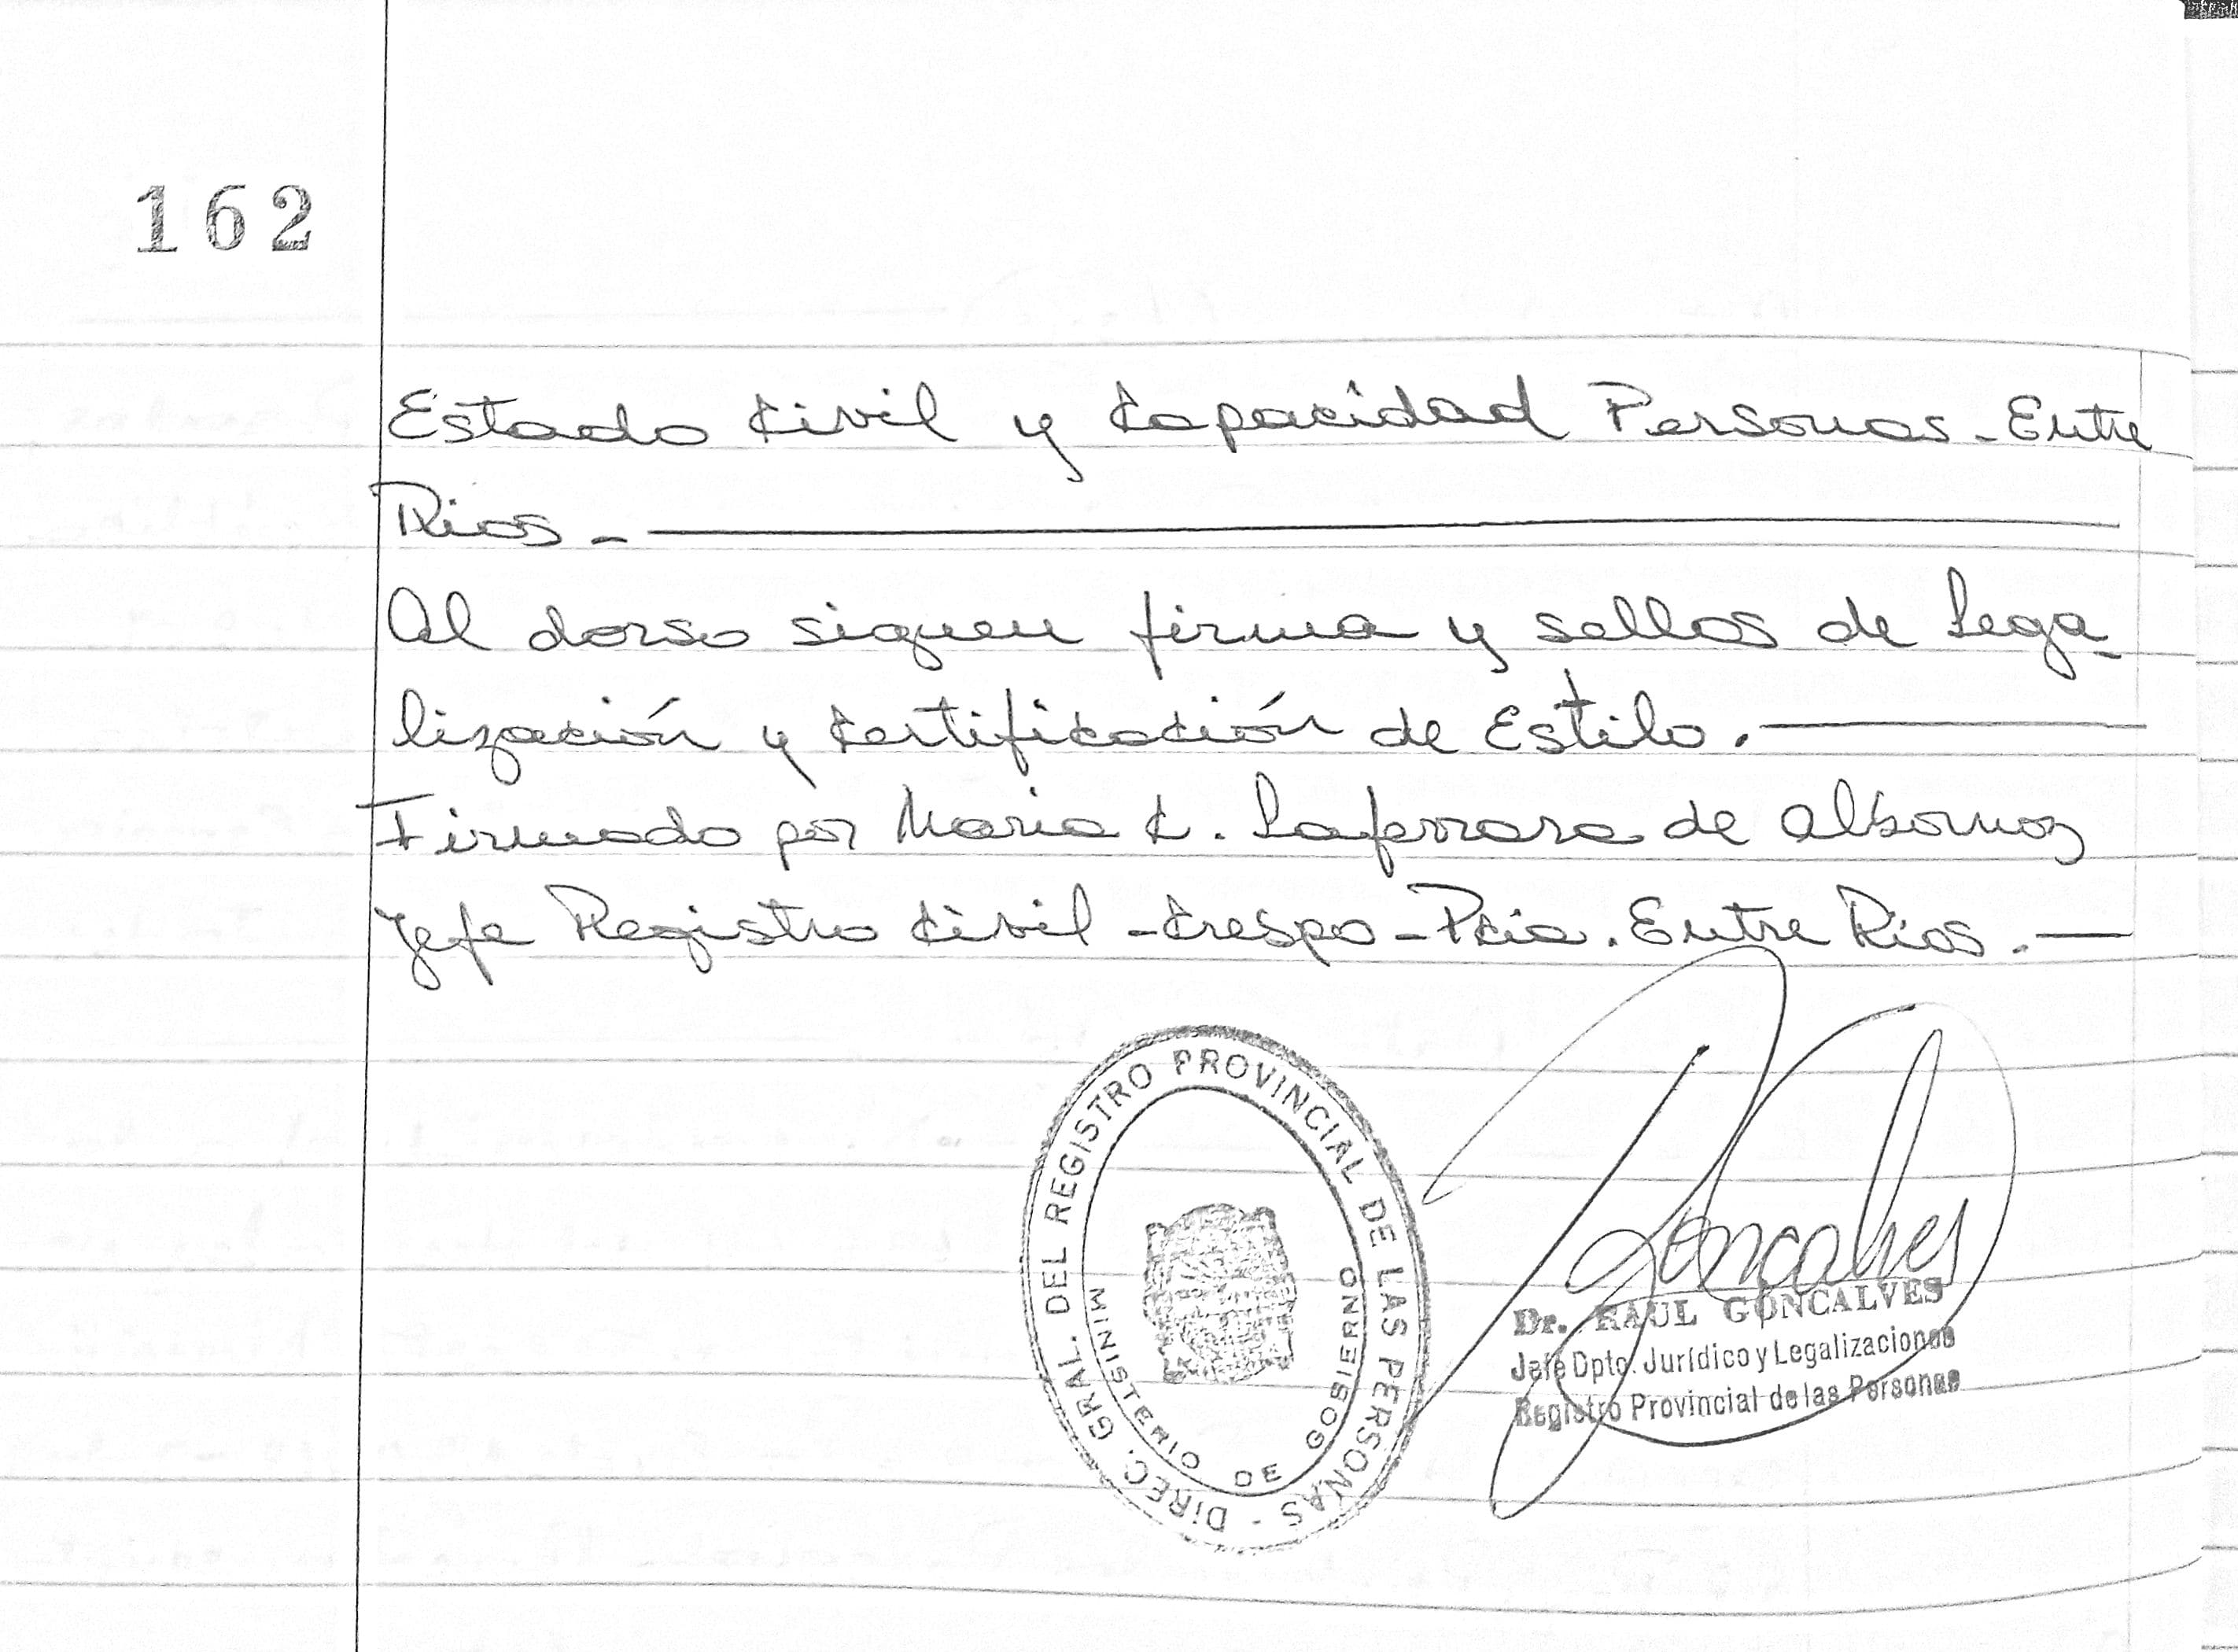 162
Estado Civil y Capacidad Personas - Entre
Rios -
Al dorso siguen firma y sellos de Lega-
lización y Certificación de Estilo.
Firmado por Maria C. Laferrara de Albornoz
Jefe Registro Civil - Crespo - Pcia. Entre Rios. -
DIREC. GRAL. DEL REGISTRO PROVINCIAL DE LAS PERSONAS -
MINISTERIO DE GOBIERNO
Goncalves
Dr. RAUL GONCALVES
Jefe Dpto. Jurídico y Legalizaciones
Registro Provincial de las Personas